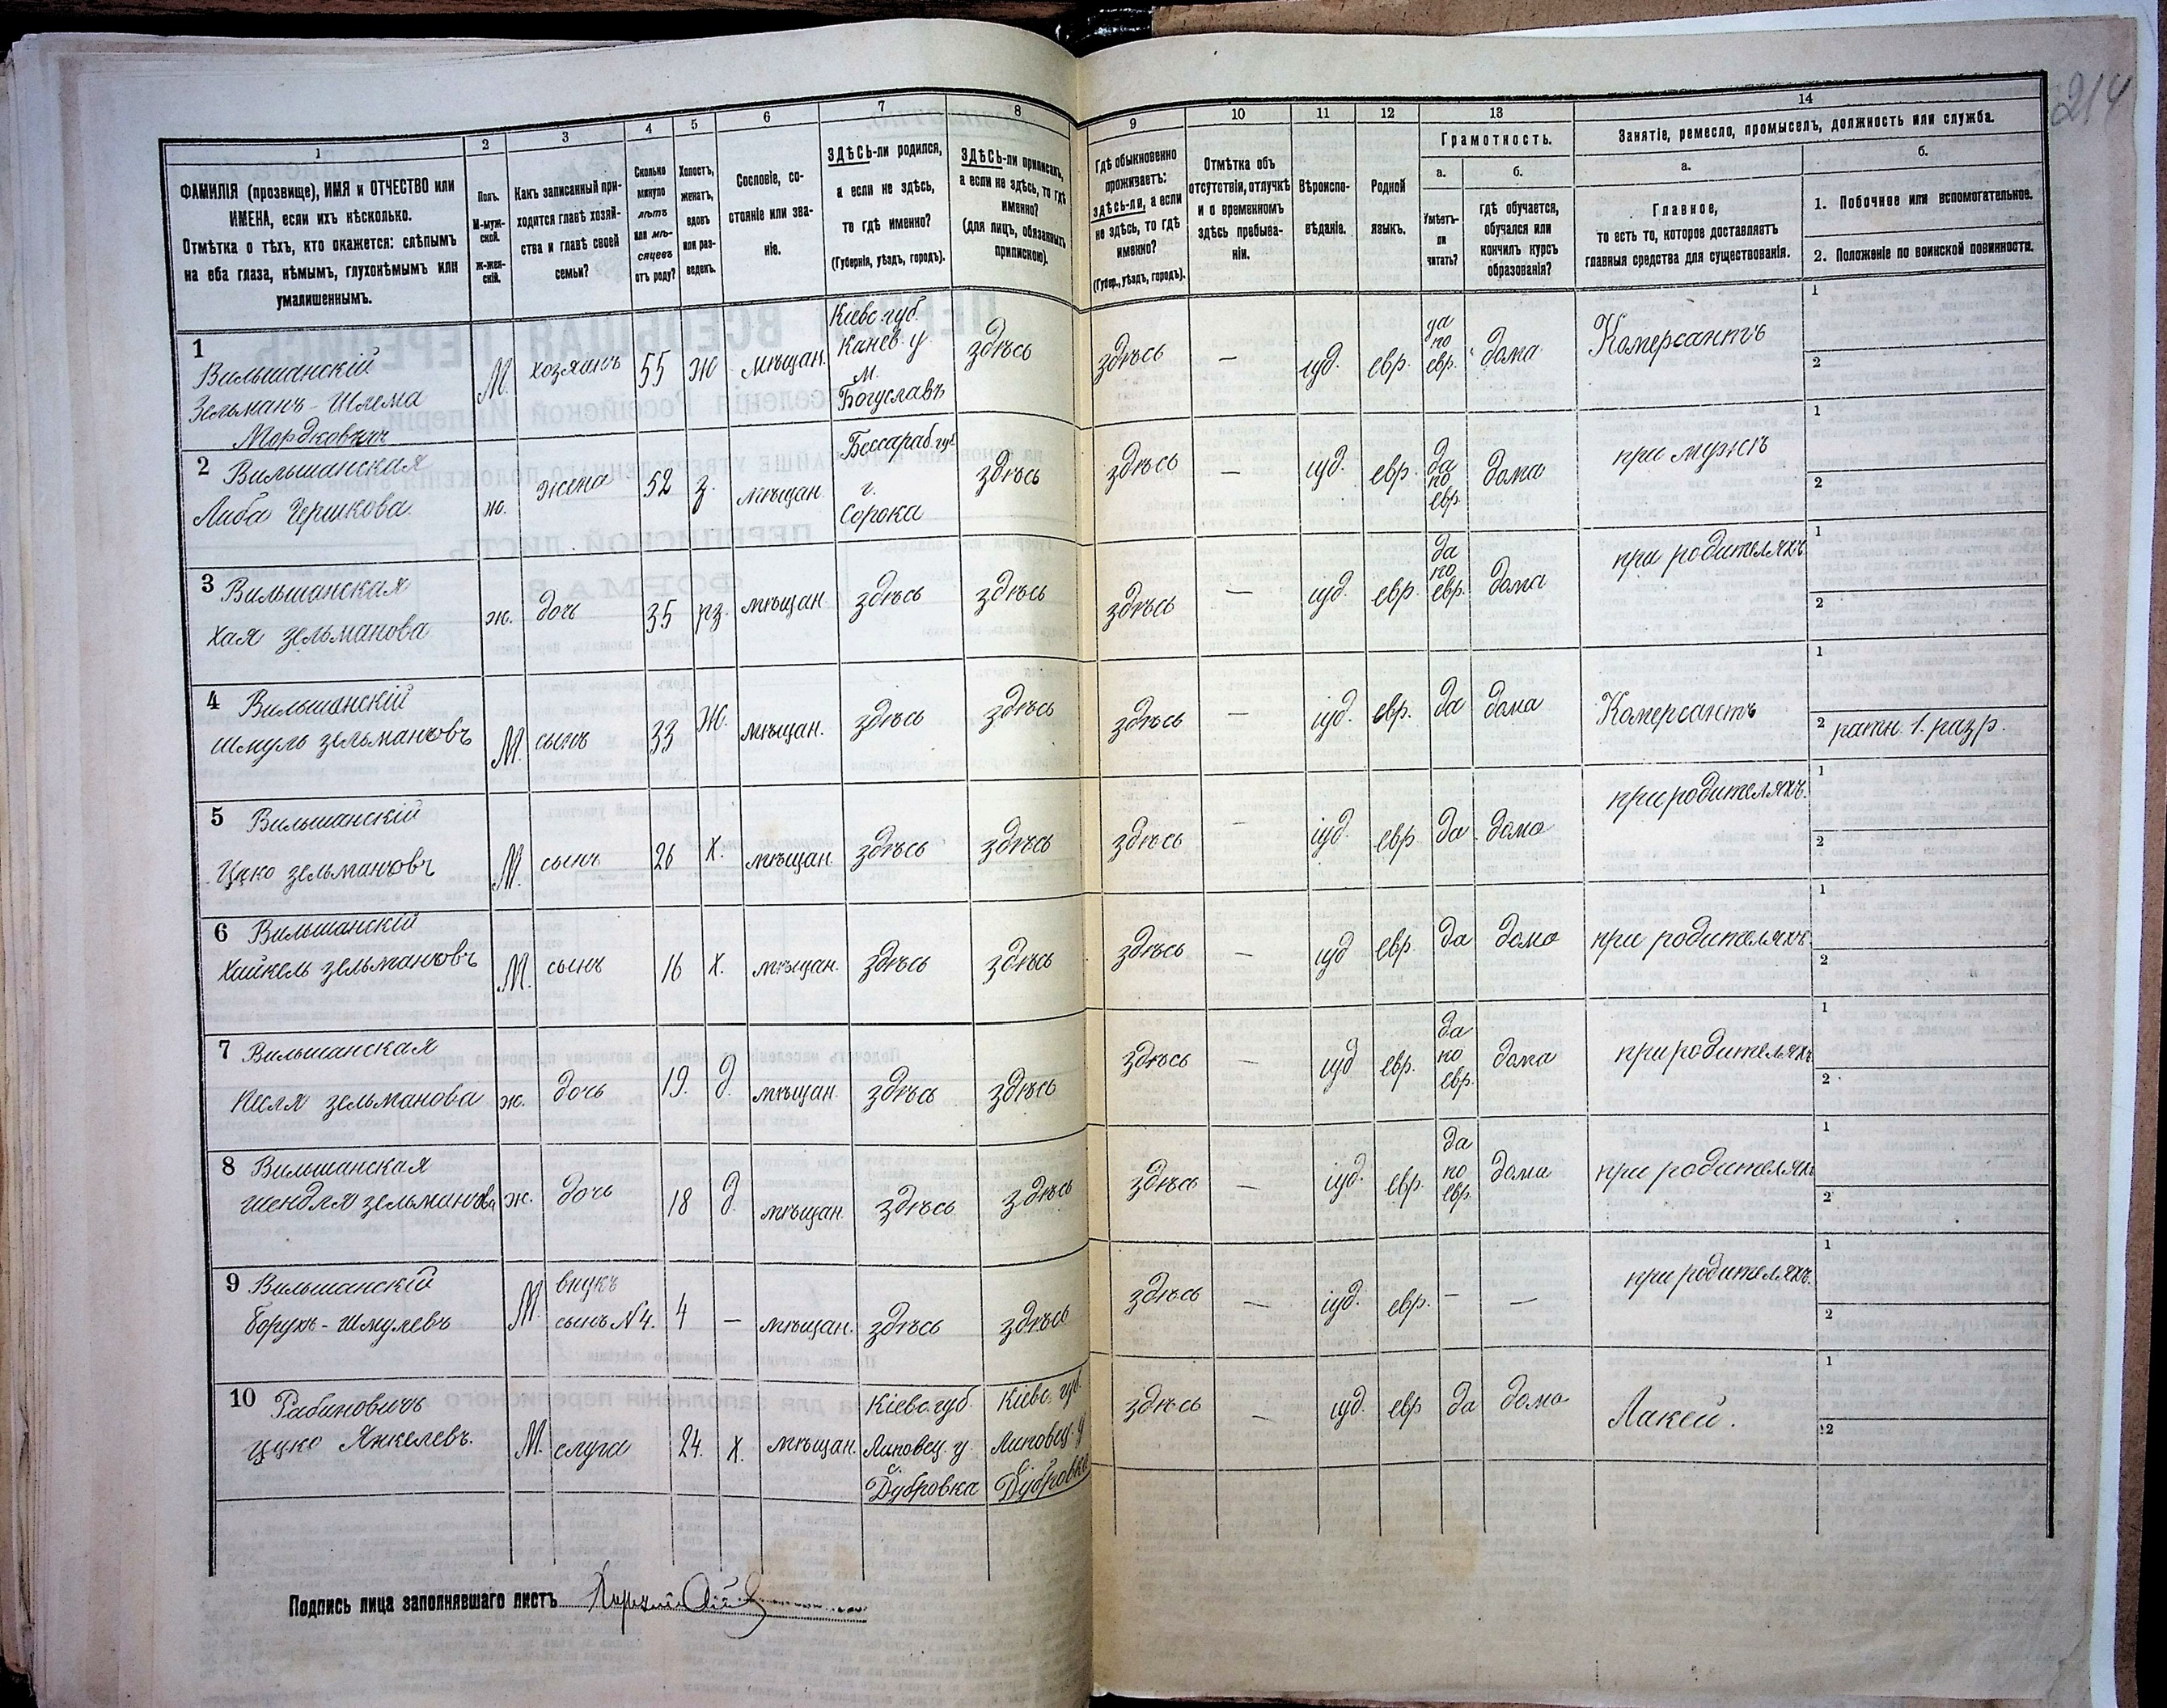 214
1
ФАМИЛІЯ (прозвище), ИМЯ и ОТЧЕСТВО или
ИМЕНА, если ихъ нѣсколько.
Отмѣтка о тѣхъ, кто окажется: слѣпымъ
на оба глаза, нѣмымъ, глухонѣмымъ или
умалишеннымъ.
2
Полъ.
М-муж-
ской.
Ж-жен-
скій.
3
Какъ записанный при-
ходится главѣ хозяй-
ства и главѣ своей
семьи?
4
Сколько
минуло
лѣтъ
или мѣ-
сяцевъ
отъ роду?
5
Холостъ,
женатъ,
вдовъ
или раз-
веденъ.
6
Сословіе, со-
стояніе или зва-
ніе.
7
ЗДѢСЬ-ли родился,
а если не здѣсь,
то гдѣ именно?
(Губернія, уѣздъ, городъ).
8
ЗДѢСЬ-ли приписанъ,
а если не здѣсь, то гдѣ
именно?
(для лицъ, обязанныхъ
припискою).
9
Гдѣ обыкновенно
проживаетъ:
здѣсь-ли, а если
не здѣсь, то гдѣ
именно?
(Губер., уѣздъ, городъ).
10
Отмѣтка объ
отсутствіи, отлучкѣ
и о временномъ
здѣсь пребыва-
ніи.
11
Вѣроиспо-
вѣданіе.
12
Родной
языкъ.
13
Грамотность.
а.
Умѣетъ-
ли
читать?
б.
гдѣ обучается,
обучался или
кончилъ курсъ
образованія?
14
Занятіе, ремесло, промыселъ, должность или служба.
а.
Главное,
то есть то, которое доставляетъ
главныя средства для существованія.
б.
1. Побочное или вспомогательное.
2. Положеніе по воинской повинности.
1
Вильшанскій
Зельманъ-Шлема
Мордковичъ
М.
хозяинъ
55
Ж
мѣщан.
Кіевс. губ.
Канев. у
м.
Богуславъ
здѣсь
здѣсь
—
іуд.
евр.
да
по
евр.
дома
Комерсантъ
1
2
2 Вильшанская
Либа Гершкова.
ж.
жена
52
з.
мѣщан
Бессараб. губ.
г.
Сорока
здѣсь
здѣсь
—
іуд.
евр.
да
по
евр.
дома
при мужѣ
1
2
3 Вильшанская
Хая зельманова
ж.
дочь
35
рз.
мѣщан
здѣсь
здѣсь
здѣсь
—
іуд.
евр.
да
по
евр.
дома
при родителяхъ
1
2
4 Вильшанскій
Шмуль зельмановъ
М.
сынъ
33
Ж.
мѣщан.
здѣсь
здѣсь
здѣсь
—
іуд.
евр.
да
дома
Комерсантъ
1
2 ратн. 1. разр.
5 Вильшанскій
Цуко зельмановъ
М.
сынъ
26
х.
мѣщан
здѣсь
здѣсь
здѣсь
—
іуд.
евр
да
дома
при родителяхъ.
1
2
6 Вильшанскій
Хайкель зельмановъ
М.
сынъ
16
х.
мѣщан.
здѣсь
здѣсь
здѣсь
—
іуд
евр.
да
дома
при родителяхъ
1
2
7 Вильшанская
Песля зельманова
ж.
дочь
19.
д.
мѣщан.
здѣсь
здѣсь
здѣсь
—
іуд
евр.
да
по
евр.
дома
при родителяхъ
1
2
8 Вильшанская
Шендля зельманова
ж.
дочь
18
д.
мѣщан.
здѣсь
здѣсь
здѣсь
—
іуд.
евр.
да
по
евр.
дома
при родителяхъ
1
2
9 Вильшанскій
Борухъ-Шмулевъ
М.
внукъ
сынъ №4.
4
—
мѣщан.
здѣсь
здѣсь
здѣсь
—
іуд.
евр.
—
—
при родителяхъ.
1
2
10 Рабиновичъ
Цуко Янкелевъ.
М.
слуга
24.
х.
мѣщан.
Кіевс. губ.
Липовец. у
с.
Дубровка
Кіевс. губ.
Липовец. у
с.
Дубровка
здѣсь
—
іуд.
евр
да
дома
Лакей.
1
2
Подпись лица заполнявшаго листъ